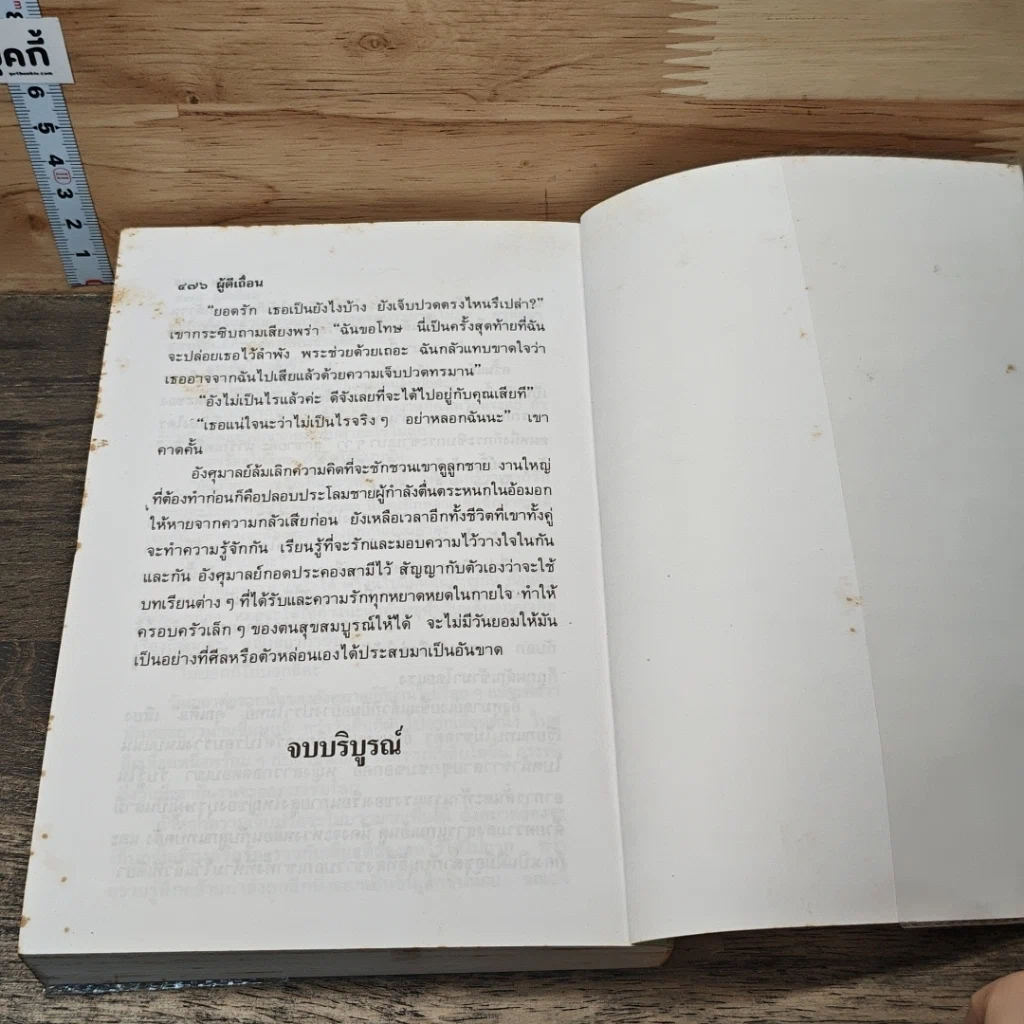 ๔๗๖ ผู้ดีเถื่อน
“ยอดรัก เธอเป็นยังไงบ้าง ยังเจ็บปวดตรงไหนรึเปล่า?”
เขากระซิบถามเสียงพร่า “ฉันขอโทษ นี่เป็นครั้งสุดท้ายที่ฉัน
จะปล่อยเธอไว้ลำพัง พระช่วยด้วยเถอะ ฉันกลัวแทบขาดใจว่า
เธออาจจากฉันไปเสียแล้วด้วยความเจ็บปวดทรมาน”
“อังไม่เป็นไรแล้วค่ะ ดีจังเลยที่จะได้ไปอยู่กับคุณเสียที”
“เธอแน่ใจนะว่าไม่เป็นไรจริง ๆ อย่าหลอกฉันนะ” เขา
คาดคั้น
อังศุมาลย์ล้มเลิกความคิดที่จะชักชวนเขาดูลูกชาย งานใหญ่
ที่ต้องทำก่อนก็คือปลอบประโลมชายผู้กำลังตื่นตระหนกในอ้อมอก
ให้หายจากความกลัวเสียก่อน ยังเหลือเวลาอีกทั้งชีวิตที่เขาทั้งคู่
จะทำความรู้จักกัน เรียนรู้ที่จะรักและมอบความไว้วางใจในกัน
และกัน อังศุมาลย์กอดประคองสามีไว้ สัญญากับตัวเองว่าจะใช้
บทเรียนต่าง ๆ ที่ได้รับและความรักทุกหยาดหยดในกายใจ ทำให้
ครอบครัวเล็ก ๆ ของตนสุขสมบูรณ์ให้ได้ จะไม่มีวันยอมให้มัน
เป็นอย่างที่ศีลหรือตัวหล่อนเองได้ประสบมาเป็นอันขาด
จบบริบูรณ์
6
5
4
3
2
1